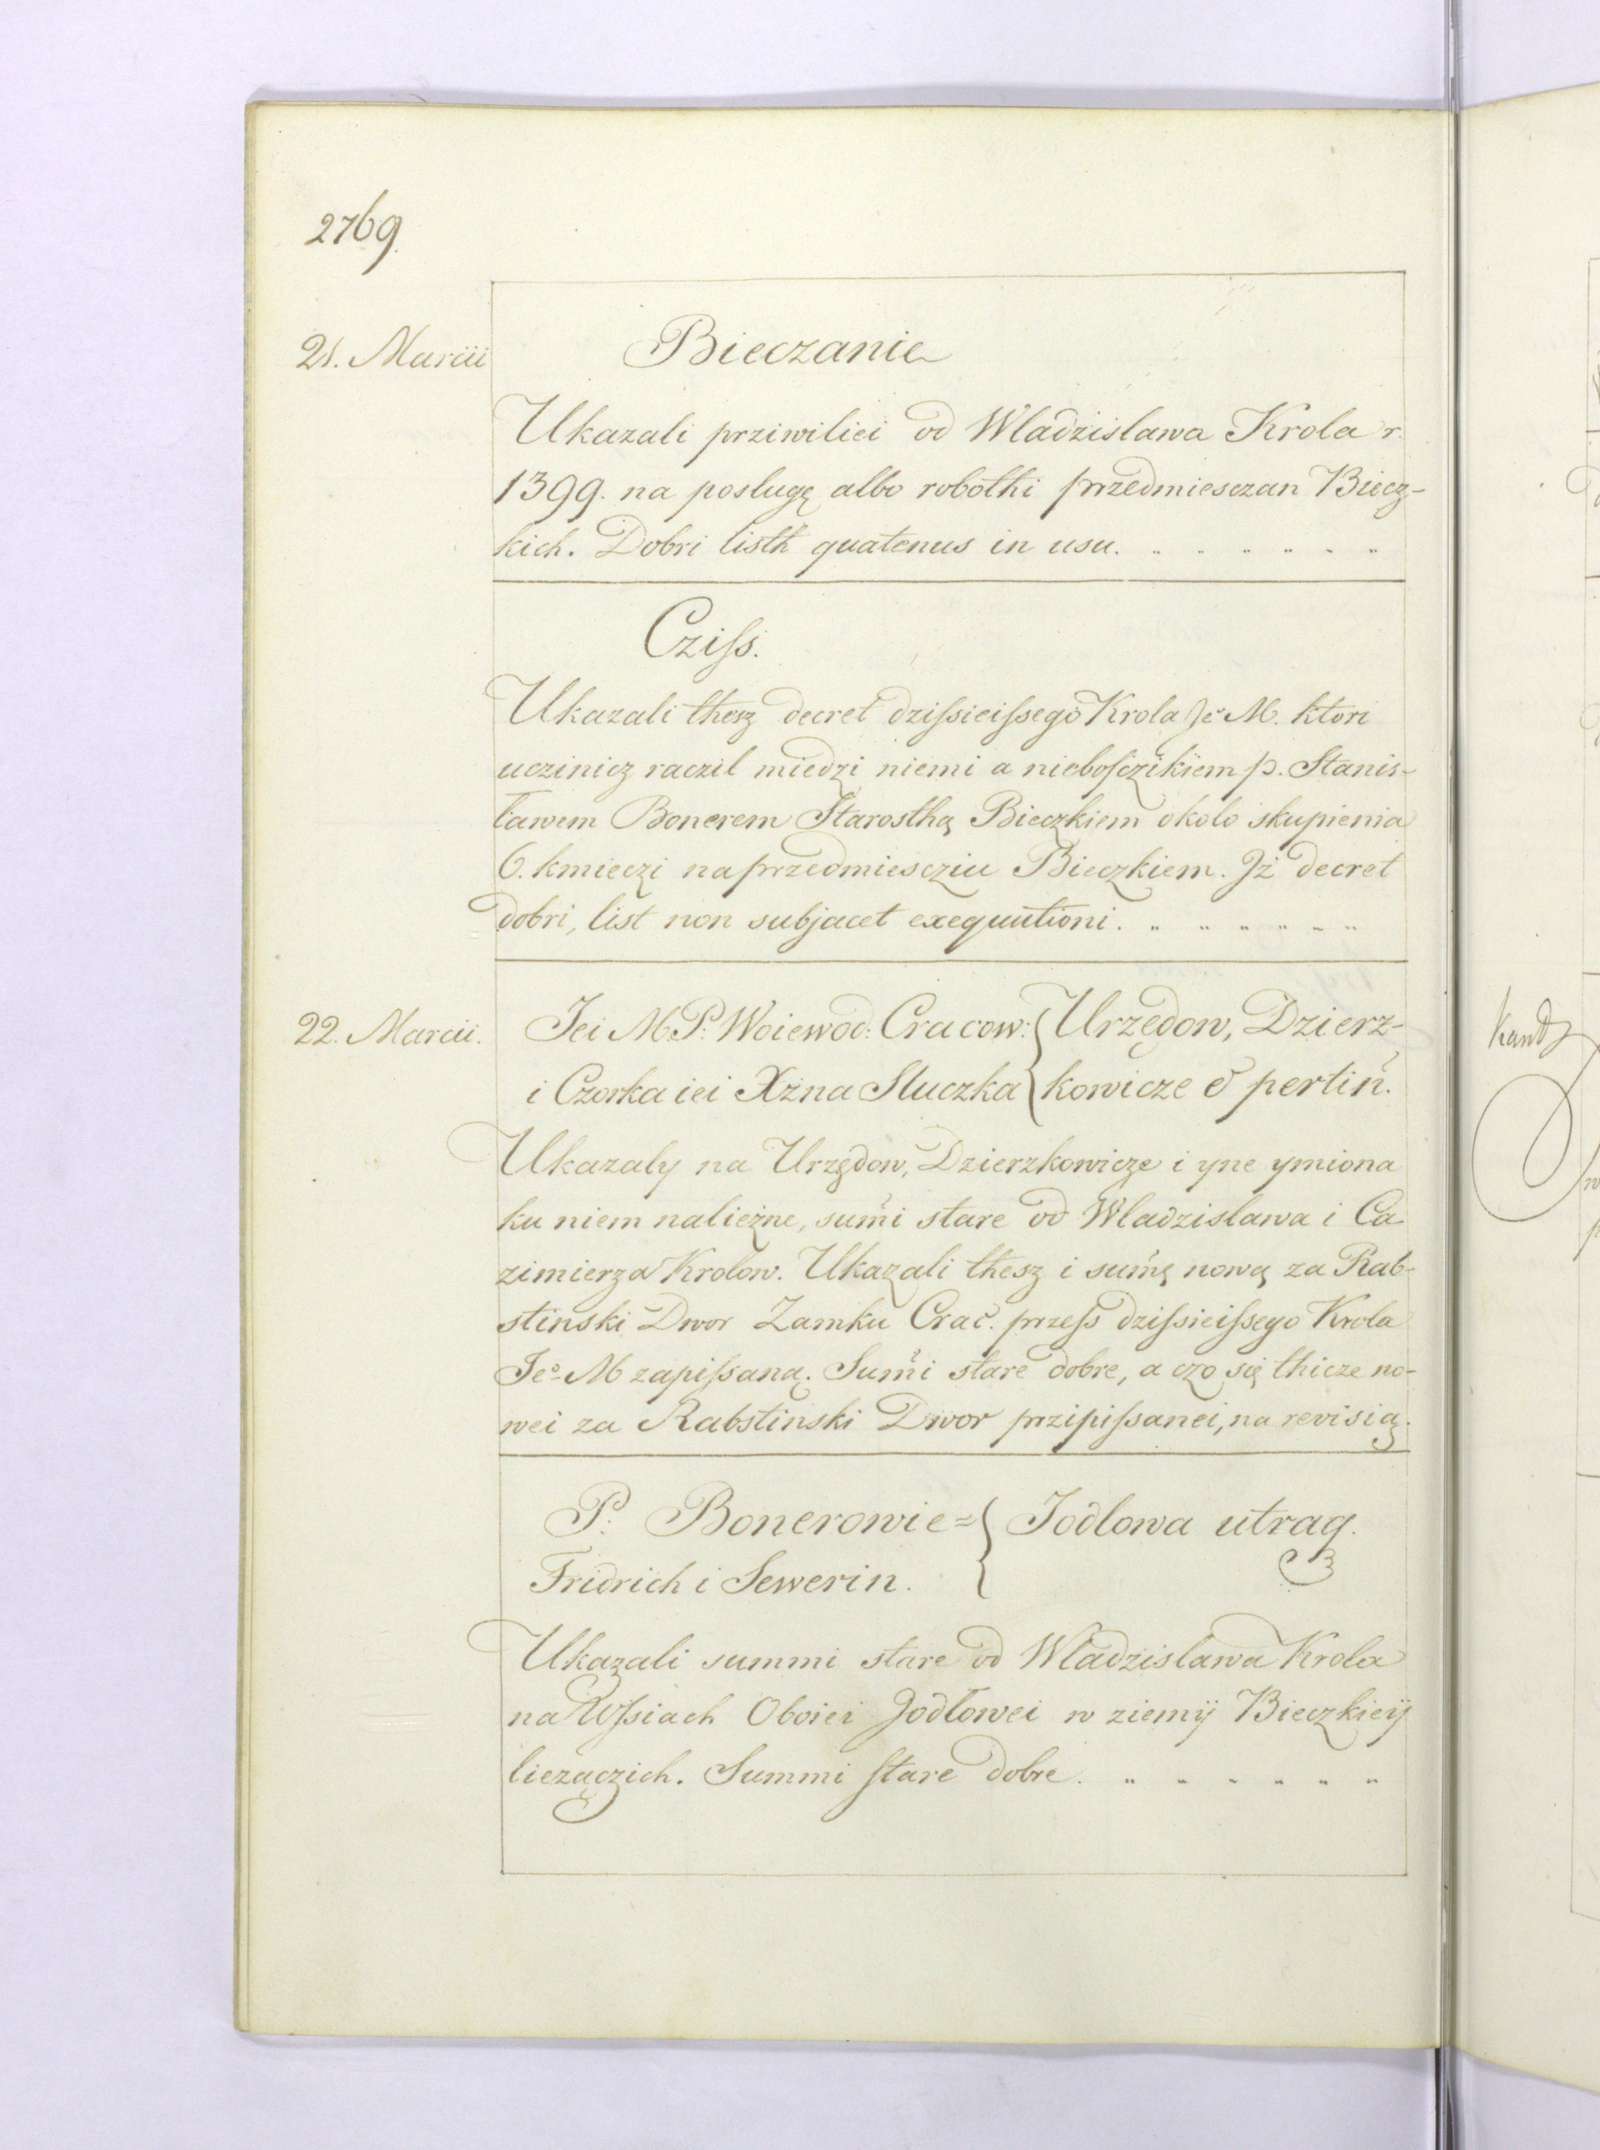 2769.
21. Marcii
Bieczanie
Ukazali prziwiliei od Wladzislawa Krola r.
1399. na poslugę albo robothi przedmiesczan Biecz-
kich. Dobri listh quatenus in usu.
Cziſs.
Ukazali thesz decret dziſsieiſsego Krola Je M. ktori
uczinicz raczil miedzi niemi a nieboſczikiem p. Stanis-
ławem Bonerem Starosthą Bieczkiem okolo skupienia
6. kmieczi na przedmiescziu Bieczkiem. Iż decret
dobri, list non subjacet exequutioni.
22. Marcii.
Iei M. P. Woiewod: Cracow: { Urzędow, Dzierz-
i Czorka iei Xżna Sluczka { kowicze & pertiń.
Ukazaly na Urzędow, Dzierzkowicze i yne ymiona
ku niem należne, sum̃i stare od Wladzislawa i Ca
zimierza Krolow. Ukazali thesz i sum̃ę nową za Rab-
stinski Dwor Zamku Crac̃. przeſs dziſsieiſsego Krola
Ieo M zapiſsaną. Sum̃i stare dobre, a czo się thicze no-
wei za Rabstinski Dwor przipiſsanei, na revisią.
P. Bonerowie = { Jodlowa utraq.
Fridrich i Sewerin.
Ukazali summi stare od Wladzislawa Krola
na Wſsiach Oboiei Jodłowei w ziemÿ Bieczkieÿ
liezączich. Summi ſtare dobre.